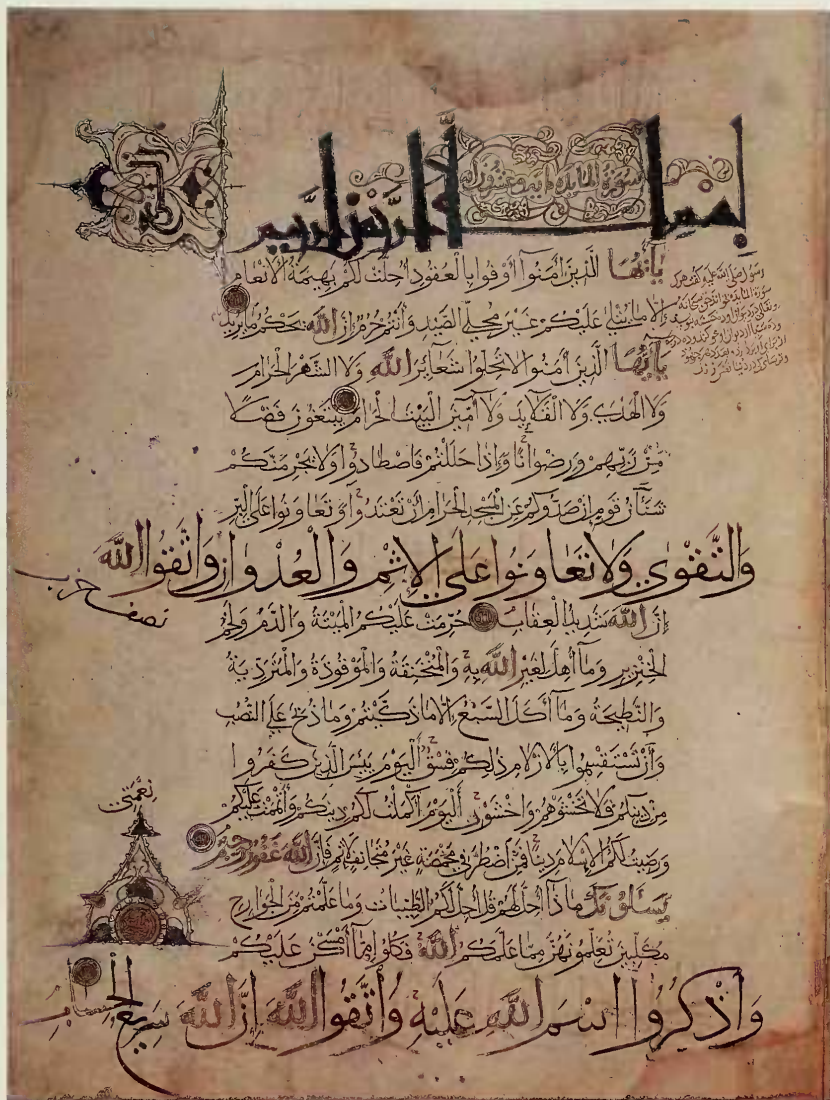 سورة المائدة مايه وعشرون
بسم الله الرحمن الرحيم
يأيها الذين آمنوا أوفوا بالعقود أحلت لكم بهيمة الأنعام
إلا ما يتلى عليكم غير محلي الصيد وأنتم حرم إن الله يحكم ما يريد
يأيها الذين آمنوا لا تحلوا شعاير الله ولا الشهر الحرام
ولا الهدي ولا القلايد ولا آمين البيت الحرام يبتغون فضلا
من ربهم ورضوانا وإذا حللتم فاصطادوا ولا يجرمنكم
شنآن قوم أن صدوكم عن المسجد الحرام أن تعتدوا وتعاونوا على البر
والتقوى ولا تعاونوا على الإثم والعدوان واتقوا الله
إن الله شديد العقاب حرمت عليكم الميتة والدم ولحم
الخنزير وما أهل لغير الله به والمنخنقة والموقوذة والمتردية
والنطيحة وما أكل السبع إلا ما ذكيتم وما ذبح على النصب
وأن تستقسموا بالأزلام ذلكم فسق اليوم يئس الذين كفروا
من دينكم فلا تخشوهم واخشون اليوم أكملت لكم دينكم وأتممت عليكم
نعمتي
ورضيت لكم الإسلام دينا فمن اضطر في مخمصة غير متجانف لإثم فإن الله غفور رحيم
يسلونك ماذا أحل لهم قل أحل لكم الطيبات وما علمتم من الجوارح
مكلبين تعلمونهن مما علمكم الله فكلوا مما أمسكن عليكم
واذكروا اسم الله عليه واتقوا الله إن الله سريع الحساب
رسول صلى الله عليه گفت هرک
سورة المائدة بخواند حق سبحانه
نصف حزب